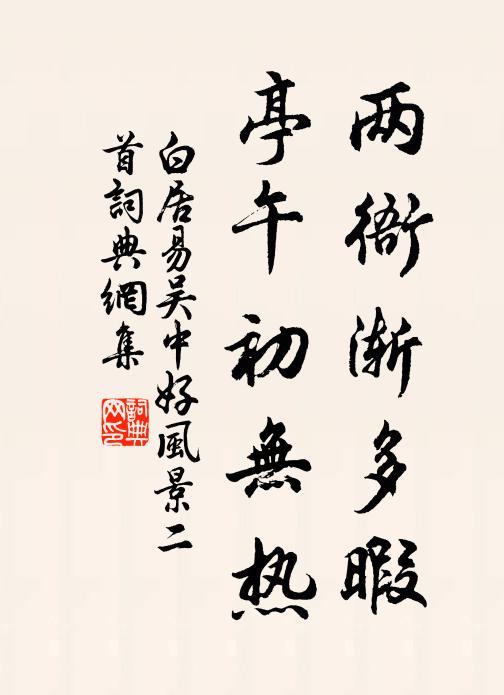 两衙渐多暇
亭午初無热
白居易吴中好風景二
首詞典網集
詞典
网印